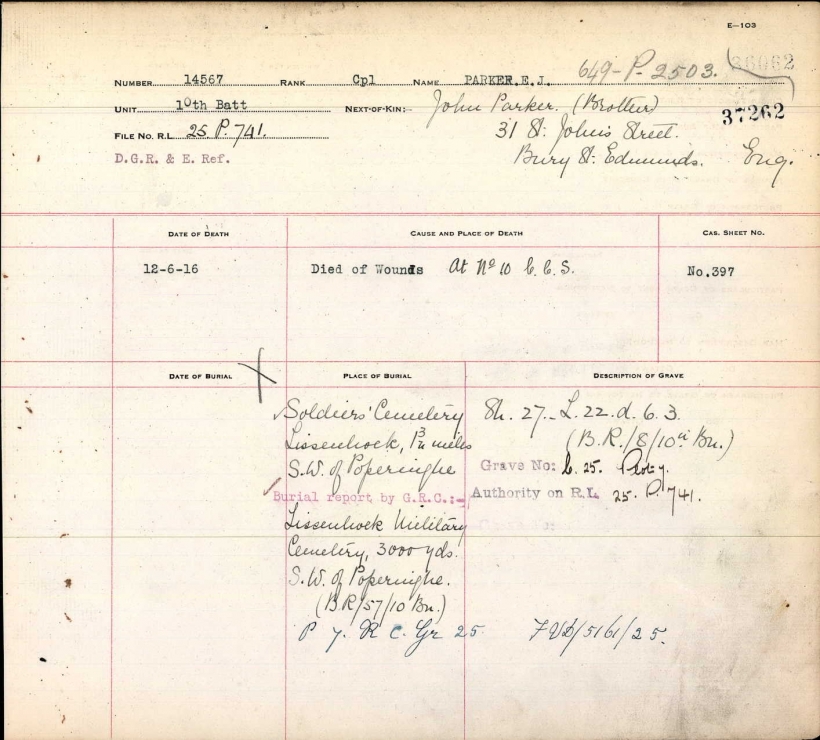 E—103
NUMBER 14567 RANK Cpl NAME PARKER, E.J. 649-P-2503. 36062
UNIT 10th Batt NEXT-OF-KIN:- John Parker. (Brother) 37262
FILE NO. R.L. 25 P. 741. 31 St. John's Street.
D.G.R. & E. Ref. Bury St. Edmunds. Eng.
DATE OF DEATH CAUSE AND PLACE OF DEATH CAS. SHEET NO.
12-6-16 Died of Wounds At No 10 C.C.S. No.397
DATE OF BURIAL PLACE OF BURIAL DESCRIPTION OF GRAVE
Soldiers' Cemetery Sh. 27.-L.22.d.6.3.
Lissenhock, miles (B.R./8/10th Bn.)
S.W. of Poperinghe Grave No: C. 25. Plot 7.
Burial report by G.R.C.:- Authority on R.L. 25. P. 741.
Lissenhock Military
Cemetery, 3000 yds.
S.W. of Poperinghe.
(B.R/57/10 Bn.)
P 7. R C. Gr 25. /5161/25.